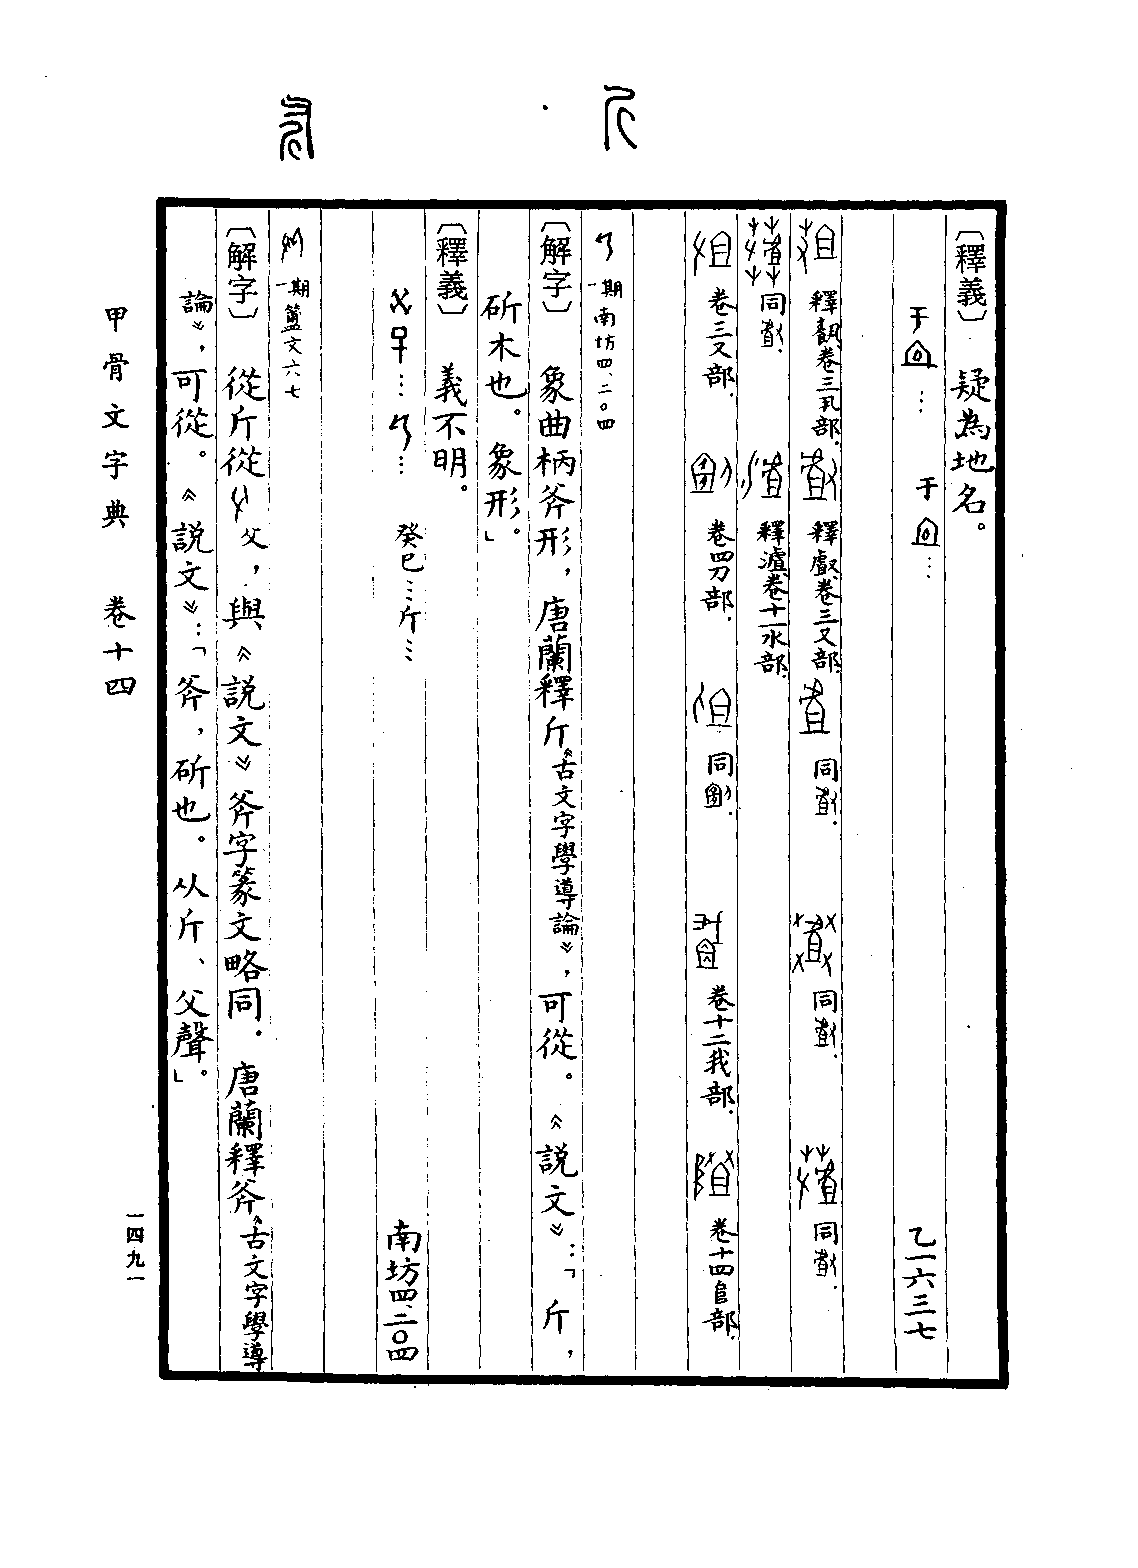 斤
斧
〔釋義〕　疑為地名。
于…　于…
乙一六三七
釋卷三丮部.　釋㪥卷三又部.　同.　同.　同.
同.　釋瀘卷十一水部.
卷三又部.　卷四刀部.　同.　卷十二我部.　卷十四𨸏部.
一期南坊四、二〇四
〔解字〕　象曲柄斧形，唐蘭釋斤《古文字學導論》，可從。《說文》：「斤，
斫木也。象形。」
〔釋義〕　義不明。
……　癸巳…斤…　南坊四、二〇四
一期簠文六七
〔解字〕　從斤從父，與《說文》斧字篆文略同．唐蘭釋斧《古文字學導
論》，可從。《說文》：「斧，斫也。从斤、父聲。」
甲骨文字典　卷十四
一四九一